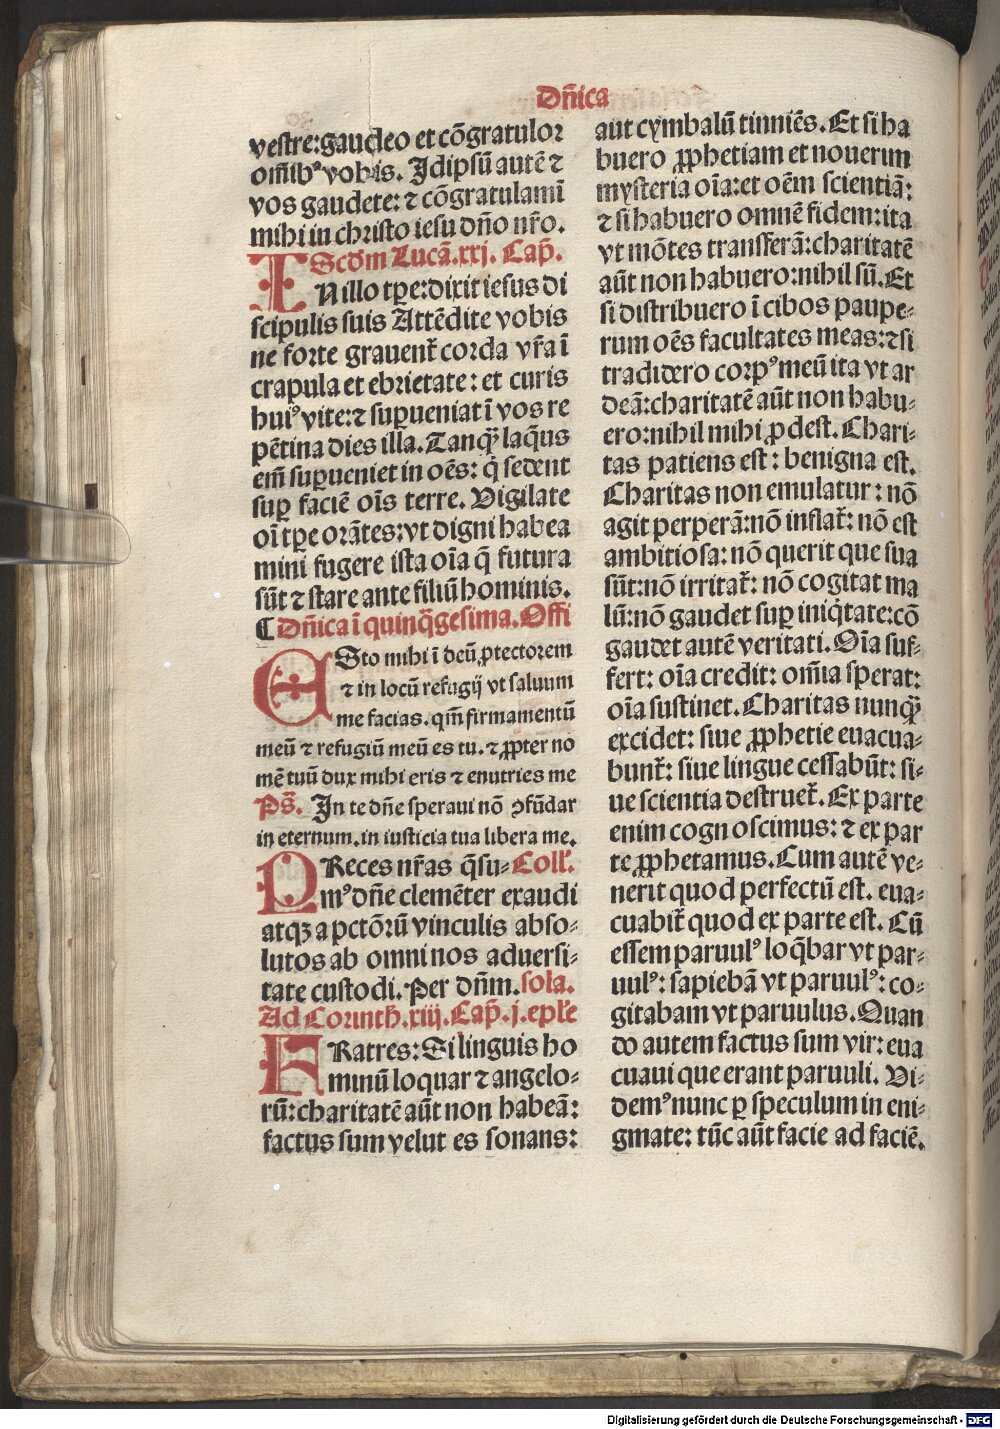 Dñica
vestre:gaudeo et cõgratulor
om̃ibꝰ vobis. Idipsũ autẽ ⁊
vos gaudete: ⁊ cõgratulamĩ
mihi in christo iesu dño nr̃o.
Scđm Lucã.xxj. Cap̃.
IN illo tp̃e:dixit iesus di
scipulis suis Attẽdite vobis
ne forte grauent̃ corda vr̃a ĩ
crapula et ebrietate: et curis
huiꝰ vite:⁊ suꝑueniat ĩ vos re
pẽtina dies illa. Tanq̃ʒ laq̃us
em̃ suꝑueniet in oẽs: q̇ sedent
suꝑ faciẽ oĩs terre. Vigilate
oĩ tp̃e orãtes:vt digni habea
mini fugere ista oĩa q̃ futura
sũt ⁊ stare ante filiũ hominis.
⁋ Dñica ĩ quinq̃gesima. Offi
ESto mihi ĩ deũ ꝓtectorem
⁊ in locũ refugij vt saluum
me facias. qm̃ firmamentũ
meũ ⁊ refugiũ meũ es tu. ⁊ ꝓpter no
mẽ tuũ dux mihi eris ⁊ enutries me
Ps̃. In te dñe speraui nõ ꝯfũdar
in eternum. in iusticia tua libera me.
PReces nr̃as q̃su- Coll̃.
mꝰ dñe clemẽter exaudi
atqʒ a pctõrũ vinculis abso-
lutos ab omni nos aduersi-
tate custodi. Per dñm. sola.
Ad Corinth̃.xiij. Cap̃. j. epl̃e
FRatres: Si linguis ho
minũ loquar ⁊ angelo-
rũ: charitatẽ aũt non habeã:
factus sum velut es sonans:
aut cymbalũ tinniẽs. Et si ha
buero ꝓphetiam et nouerim
mysteria oĩa: et oẽm scientiã:
⁊ si habuero omnẽ fidem: ita
vt mõtes transferã: charitatẽ
aũt non habuero: nihil sũ. Et
si distribuero ĩ cibos paupe-
rum oẽs facultates meas: ⁊ si
tradidero corpꝰ meũ ita vt ar
deã: charitatẽ aũt non habu-
ero: nihil mihi ꝓdest. Chari-
tas patiens est: benigna est.
Charitas non emulatur: nõ
agit perperã: nõ inflat̃: nõ est
ambitiosa: nõ querit que sua
sũt: nõ irritat̃: nõ cogitat ma
lũ: nõ gaudet suꝑ iniq̇tate: cõ
gaudet autẽ veritati. Oĩa suf-
fert: oĩa credit: om̃ia sperat:
oĩa sustinet. Charitas nunq̃ʒ
excidet: siue ꝓphetie euacua-
bunt̃: siue lingue cessabũt: si-
ue scientia destruet̃. Ex parte
enim cognoscimus: ⁊ ex par
te ꝓphetamus. Cum autẽ ve-
nerit quod perfectũ est. eua-
cuabit̃ quod ex parte est. Cũ
essem paruulꝰ loq̃bar vt par-
uulꝰ: sapiebã vt paruulꝰ: co-
gitabam vt paruulus. Quan
do autem factus sum vir: eua
cuaui que erant paruuli. Vi-
demꝰ nunc ꝑ speculum in eni-
gmate: tũc aũt facie ad faciẽ.
Digitalisierung gefördert durch die Deutsche Forschungsgemeinschaft - DFG